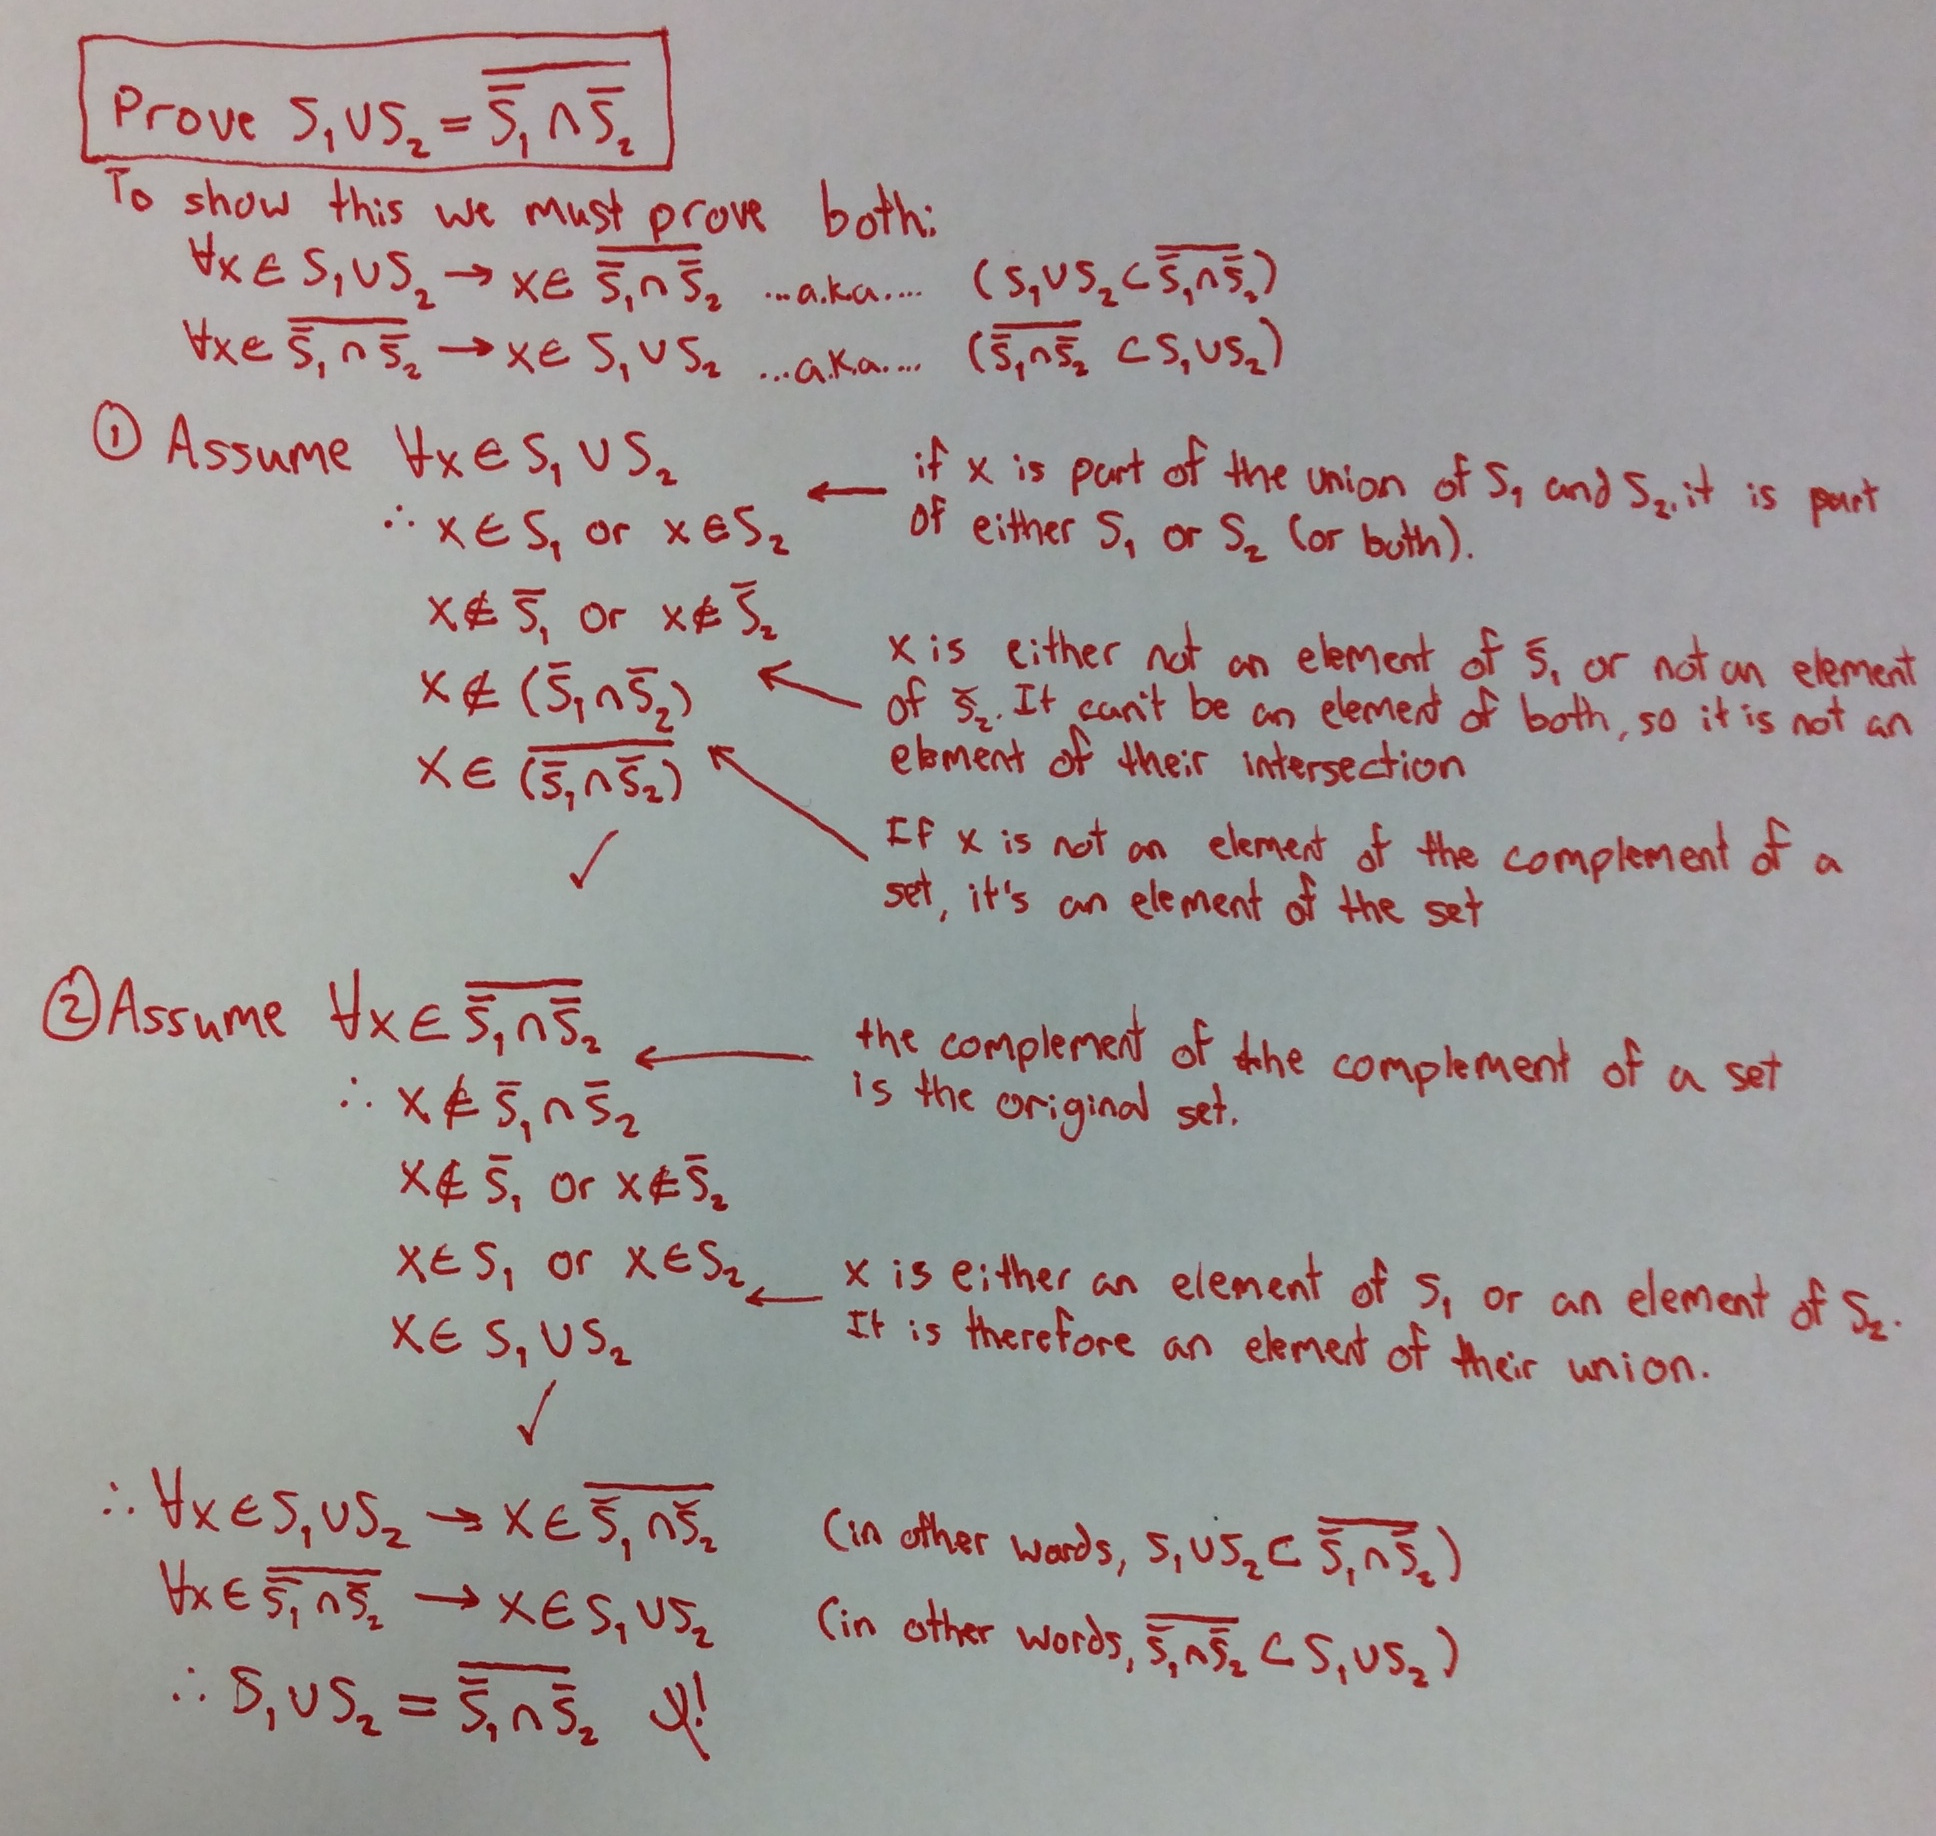 Prove S₁∪S₂ = $\overline{\overline{S}_1 ∩ \overline{S}_2}$
To show this we must prove both:
∀x ∈ S₁∪S₂ → x ∈ $\overline{\overline{S}_1 ∩ \overline{S}_2}$ ...a.k.a.... (S₁∪S₂ ⊂ $\overline{\overline{S}_1 ∩ \overline{S}_2}$)
∀x ∈ $\overline{\overline{S}_1 ∩ \overline{S}_2}$ → x ∈ S₁∪S₂ ...a.k.a.... ($\overline{\overline{S}_1 ∩ \overline{S}_2}$ ⊂ S₁∪S₂)
① Assume ∀x ∈ S₁∪S₂
∴ x ∈ S₁ or x ∈ S₂
← if x is part of the union of S₁ and S₂, it is part
of either S₁ or S₂ (or both).
x ∉ $\overline{S}_1$ or x ∉ $\overline{S}_2$
x ∉ ($\overline{S}_1 ∩ \overline{S}_2$)
← x is either not an element of $\overline{S}_1$ or not an element
of $\overline{S}_2$. It can't be an element of both, so it is not an
element of their intersection
x ∈ $\overline{(\overline{S}_1 ∩ \overline{S}_2)}$
✓
← If x is not an element of the complement of a
set, it's an element of the set
② Assume ∀x ∈ $\overline{\overline{S}_1 ∩ \overline{S}_2}$
∴ x ∉ $\overline{S}_1 ∩ \overline{S}_2$
← the complement of the complement of a set
is the original set.
x ∉ $\overline{S}_1$ or x ∉ $\overline{S}_2$
x ∈ S₁ or x ∈ S₂
x ∈ S₁∪S₂
← x is either an element of S₁ or an element of S₂.
It is therefore an element of their union.
✓
∴ ∀x ∈ S₁∪S₂ → x ∈ $\overline{\overline{S}_1 ∩ \overline{S}_2}$ (in other words, S₁∪S₂ ⊂ $\overline{\overline{S}_1 ∩ \overline{S}_2}$)
∀x ∈ $\overline{\overline{S}_1 ∩ \overline{S}_2}$ → x ∈ S₁∪S₂ (in other words, $\overline{\overline{S}_1 ∩ \overline{S}_2}$ ⊂ S₁∪S₂)
∴ S₁∪S₂ = $\overline{\overline{S}_1 ∩ \overline{S}_2}$